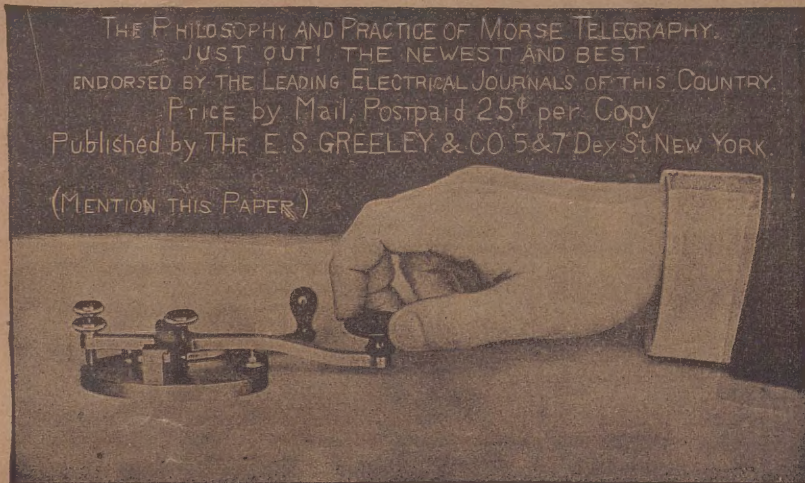 THE PHILOSOPHY AND PRACTICE OF MORSE TELEGRAPHY.
JUST OUT! THE NEWEST AND BEST
ENDORSED BY THE LEADING ELECTRICAL JOURNALS OF THIS COUNTRY.
Price by Mail, Postpaid 25¢ per Copy
Published by THE E.S. GREELEY & CO 5&7 Dey St NEW YORK
(MENTION THIS PAPER)